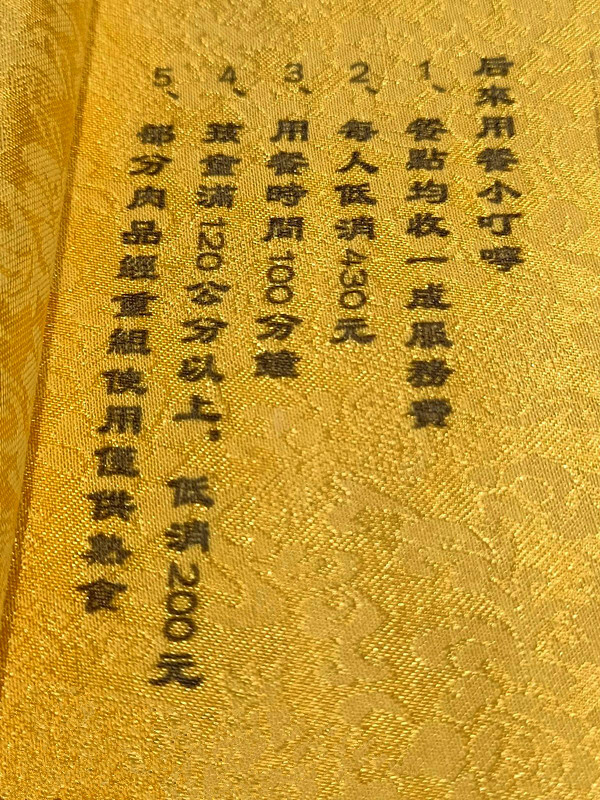 后來用餐小叮嚀
1、餐點均收一成服務費
2、每人低消430元
3、用餐時間100分鐘
4、孩童滿120公分以上，低消200元
5、部分肉品經重組使用僅供熟食